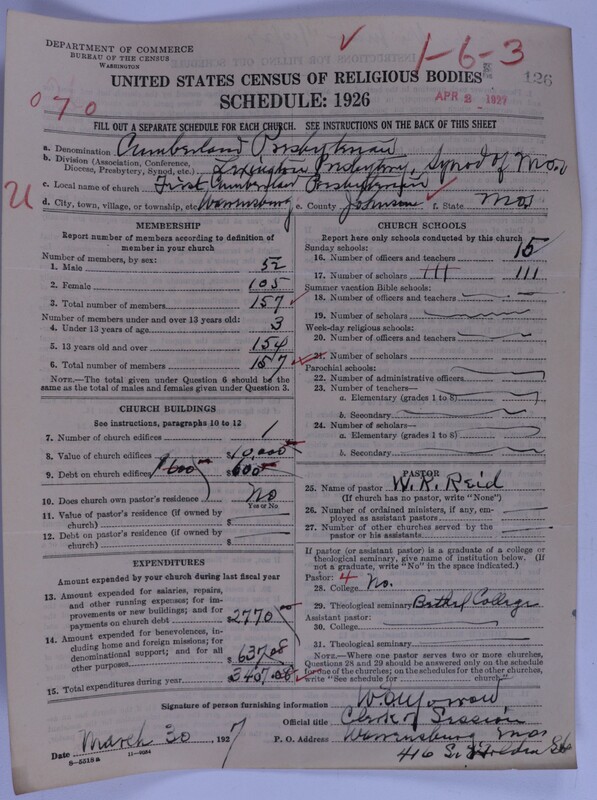 DEPARTMENT OF COMMERCE
BUREAU OF THE CENSUS
WASHINGTON
1-6-3
126
UNITED STATES CENSUS OF RELIGIOUS BODIES
SCHEDULE: 1926
APR 2 1927
070
FILL OUT A SEPARATE SCHEDULE FOR EACH CHURCH. SEE INSTRUCTIONS ON THE BACK OF THIS SHEET
a. Denomination Cumberland Presbyterian
b. Division (Association, Conference, Diocese, Presbytery, Synod, etc.) Lexington Presbytery, Synod of Mo.
c. Local name of church First Cumberland Presbyterian
d. City, town, village, or township, etc. Warrensburg e. County Johnson f. State Mo
MEMBERSHIP
Report number of members according to definition of member in your church
Number of members, by sex:
1. Male 52
2. Female 105
3. Total number of members 157
Number of members under and over 13 years old:
4. Under 13 years of age 3
5. 13 years old and over 154
6. Total number of members 157
NOTE.—The total given under Question 6 should be the same as the total of males and females given under Question 3.
CHURCH BUILDINGS
See instructions, paragraphs 10 to 12
7. Number of church edifices 1
8. Value of church edifices $10,000
9. Debt on church edifices $600
10. Does church own pastor's residence No
Yes or No
11. Value of pastor's residence (if owned by church) $
12. Debt on pastor's residence (if owned by church) $
EXPENDITURES
Amount expended by your church during last fiscal year
13. Amount expended for salaries, repairs, and other running expenses; for improvements or new buildings; and for payments on church debt $2770 00
14. Amount expended for benevolences, including home and foreign missions; for denominational support; and for all other purposes $637.08
15. Total expenditures during year $3407.08
CHURCH SCHOOLS
Report here only schools conducted by this church
Sunday schools:
16. Number of officers and teachers 15
17. Number of scholars 111 111
Summer vacation Bible schools:
18. Number of officers and teachers
19. Number of scholars
Week-day religious schools:
20. Number of officers and teachers
21. Number of scholars
Parochial schools:
22. Number of administrative officers
23. Number of teachers—
a. Elementary (grades 1 to 8)
b. Secondary
24. Number of scholars—
a. Elementary (grades 1 to 8)
b. Secondary
PASTOR
25. Name of pastor W. R. Reid
(If church has no pastor, write "None")
26. Number of ordained ministers, if any, employed as assistant pastors
27. Number of other churches served by the pastor or his assistants
If pastor (or assistant pastor) is a graduate of a college or theological seminary, give name of institution below. (If not a graduate, write "No" in the space indicated.)
Pastor: 4
28. College No.
29. Theological seminary Bethel College
Assistant pastor:
30. College
31. Theological seminary
NOTE.—Where one pastor serves two or more churches, Questions 28 and 29 should be answered only on the schedule for one of the churches; on the schedules for the other churches, write "See schedule for church"
Signature of person furnishing information
Official title Clerk of Session
Date March 30, 1927
P. O. Address Warrensburg, Mo
416 S. Holden St
8—5518a
11—9084